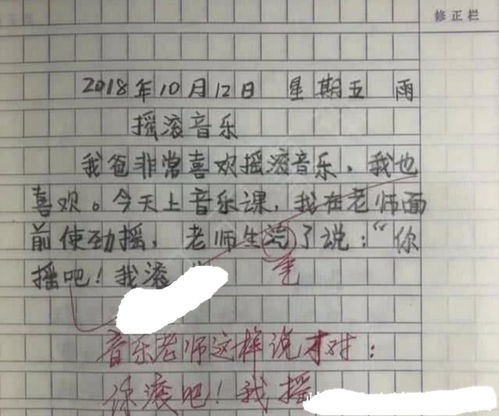 修正栏
2018年10月12日 星期五 雨
摇滚音乐
我爸非常喜欢摇滚音乐，我也
喜欢。今天上音乐课，我在老师面
前使劲摇，老师生汽了说：“你
摇吧！我滚
气
音乐老师这样说才对：
你滚吧！我摇